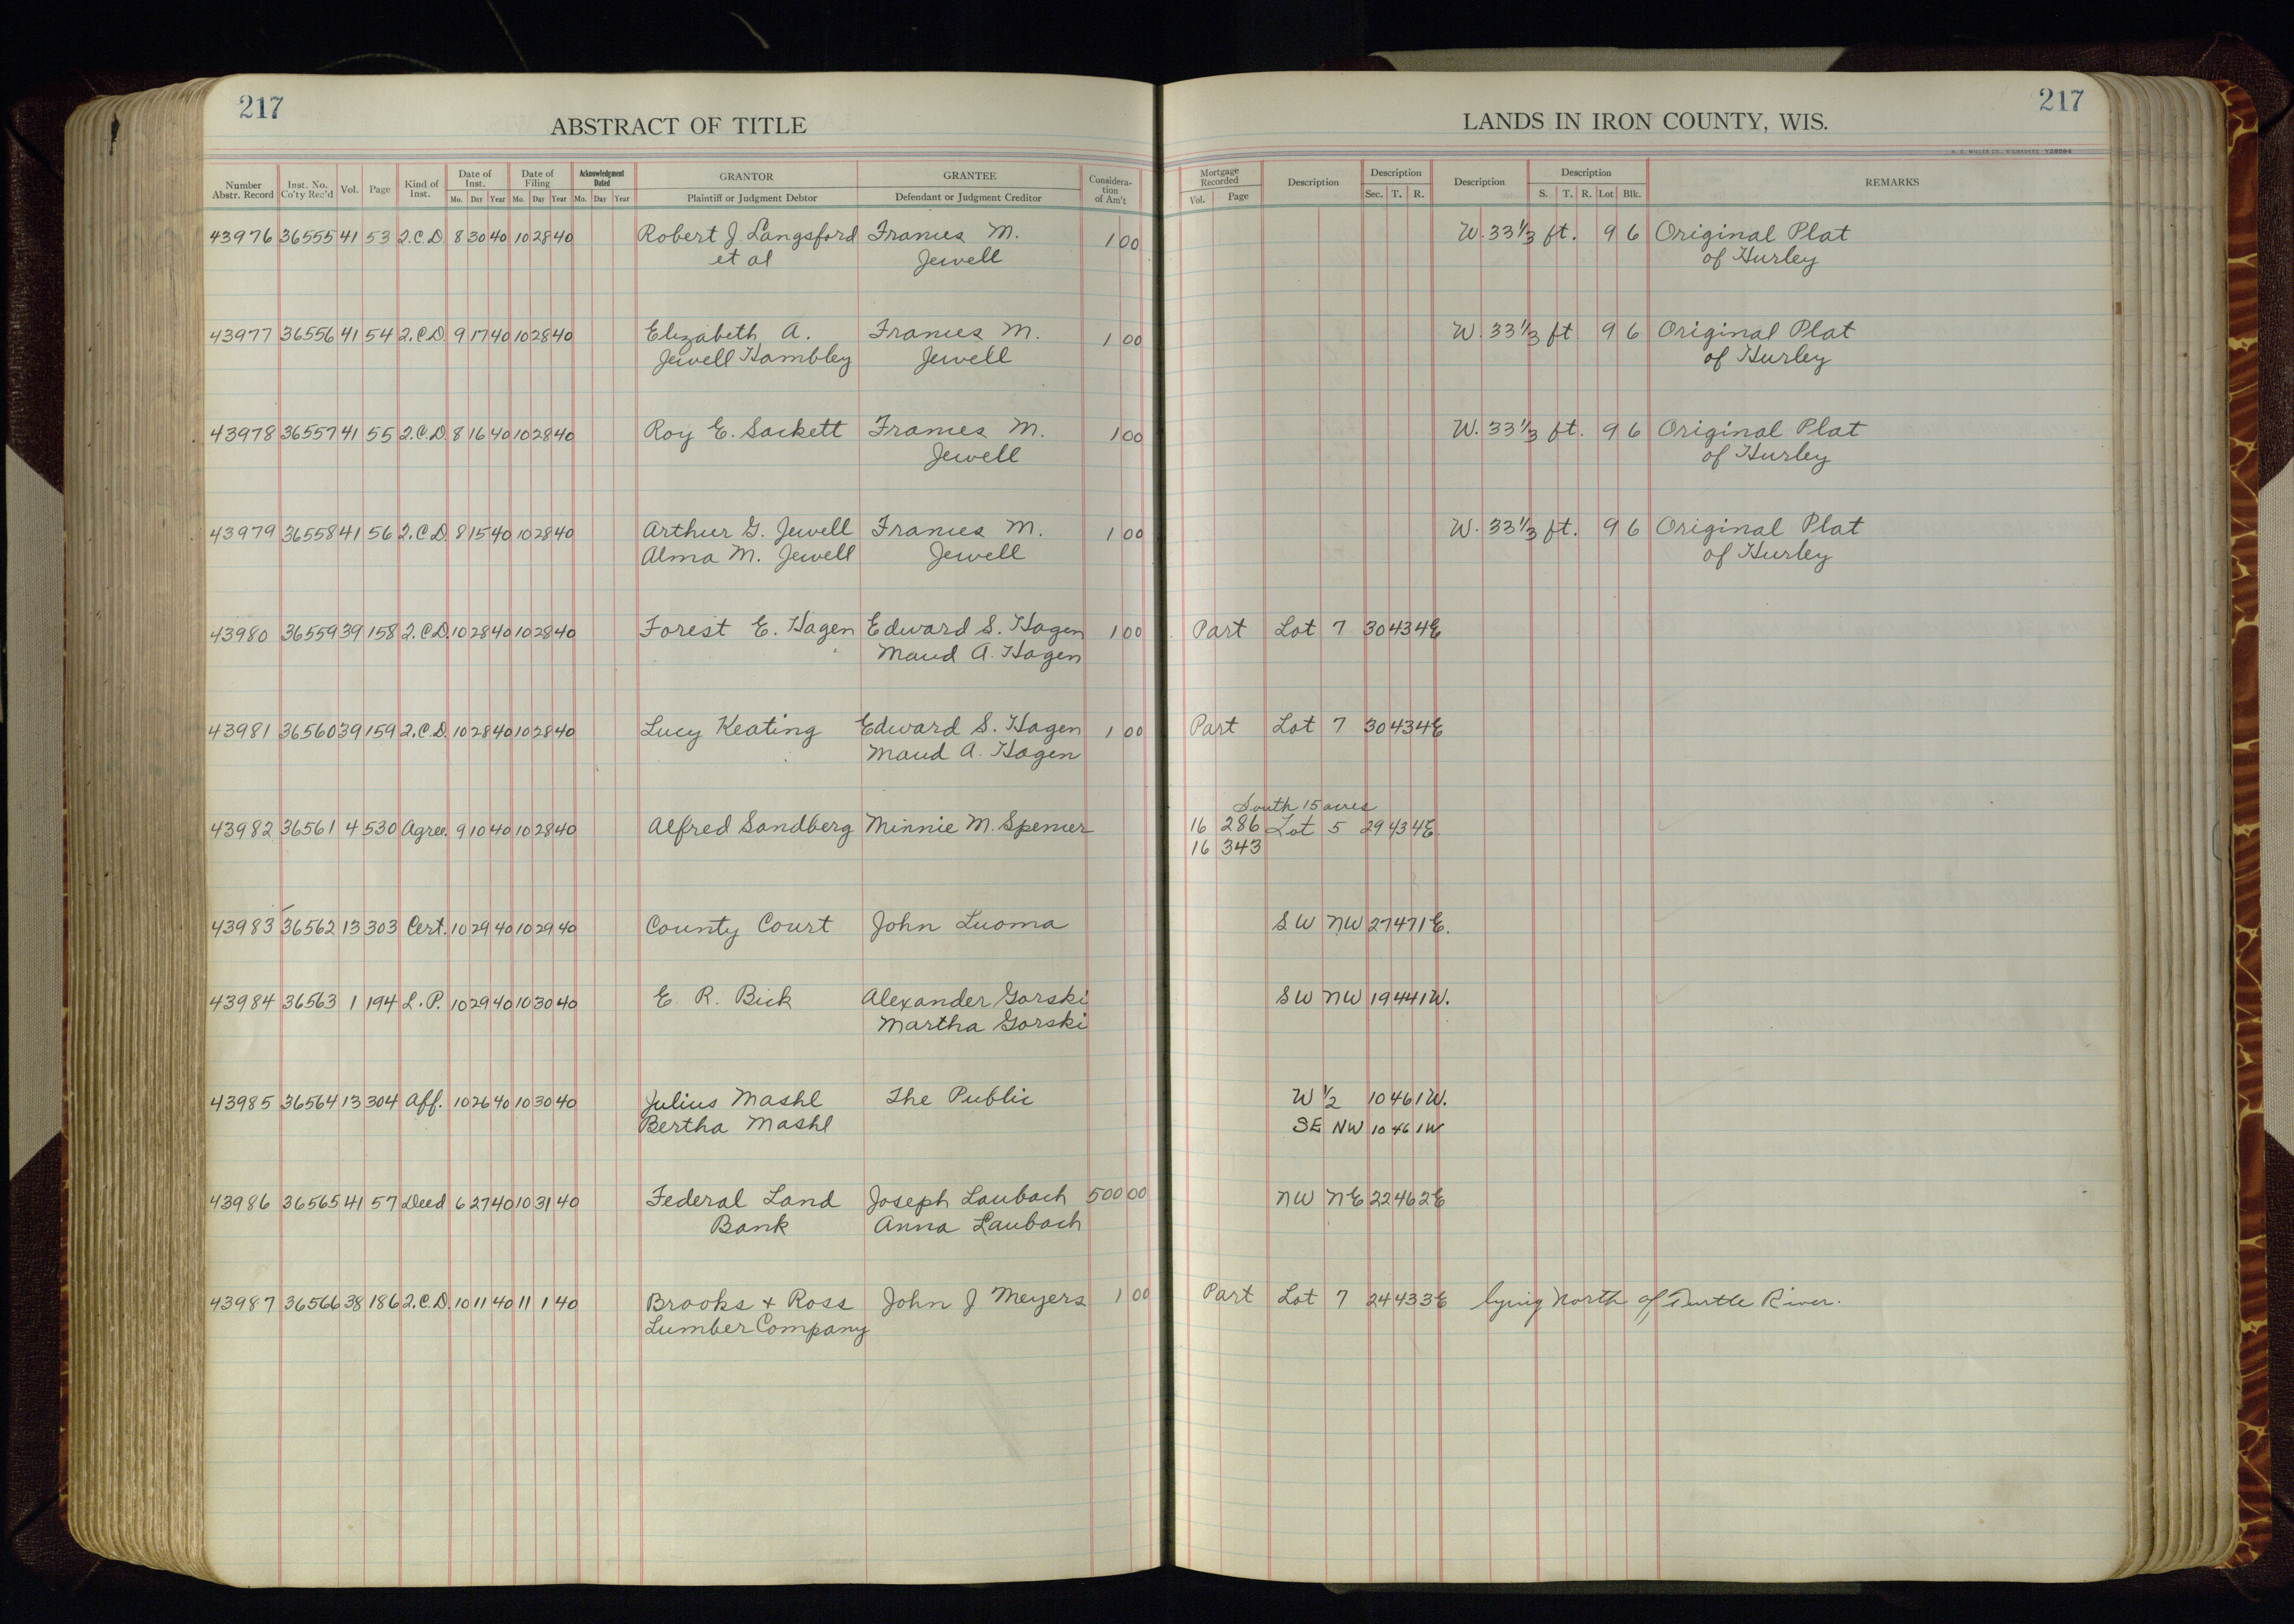 217
217
ABSTRACT OF TITLE
LANDS IN IRON COUNTY, WIS.
Number Abstr. Record Inst. No. Co'ty Rec'd Vol. Page Kind of Inst. Date of Inst. Mo. Day Year Date of Filing Mo. Day Year Acknowledgment Dated Mo. Day Year GRANTOR Plaintiff or Judgment Debtor GRANTEE Defendant or Judgment Creditor Considera-tion of Am't Mortgage Recorded Vol. Page Description Description Sec. T. R. Description Description S. T. R. Lot Blk. REMARKS
43976 36555 41 53 Q.C.D 8 30 40 10 28 40 Robert J. Langsford Frances M. 1 00 W. 33 1/3 ft. 9 6 Original Plat
et al Jewell of Hurley
43977 36556 41 54 Q.C.D. 9 17 40 10 28 40 Elizabeth A. Frances M. 1 00 W. 33 1/3 ft 9 6 Original Plat
Jewell Hambley Jewell of Hurley
43978 36557 41 55 Q.C.D. 8 16 40 10 28 40 Roy E. Sackett Frances M. 1 00 W. 33 1/3 ft. 9 6 Original Plat
Jewell of Hurley
43979 36558 41 56 Q.C.D. 8 15 40 10 28 40 Arthur G. Jewell Frances M. 1 00 W. 33 1/3 ft. 9 6 Original Plat
Alma M. Jewell Jewell of Hurley
43980 36559 39 158 Q.C.D. 10 28 40 10 28 40 Forest E. Hagen Edward S. Hagen 1 00 Part Lot 7 30 43 4E
Maud A. Hagen
43981 36560 39 159 Q.C.D. 10 28 40 10 28 40 Lucy Keating Edward S. Hagen 1 00 Part Lot 7 30 43 4E
Maud A. Hagen
South 15 acres
43982 36561 4 530 Agree. 9 10 40 10 28 40 Alfred Sandberg Minnie M. Spencer 16 286 Lot 5 29 43 4E.
16 343
43983 36562 13 303 Cert. 10 29 40 10 29 40 County Court John Luoma SW NW 27 47 1E.
43984 36563 1 194 L.P. 10 29 40 10 30 40 E. R. Bick Alexander Gorski SW NW 19 44 1W.
Martha Gorski
43985 36564 13 304 Aff. 10 26 40 10 30 40 Julius Mashl The Public W 1/2 10 46 1W.
Bertha Mashl SE NW 10 46 1W
43986 36565 41 57 Deed 6 27 40 10 31 40 Federal Land Joseph Laubach 500 00 NW NE 22 46 2E
Bank Anna Laubach
43987 36566 38 186 Q.C.D. 10 11 40 11 1 40 Brooks & Ross John J Meyers 1 00 Part Lot 7 24 43 3E lying North of Turtle River.
Lumber Company